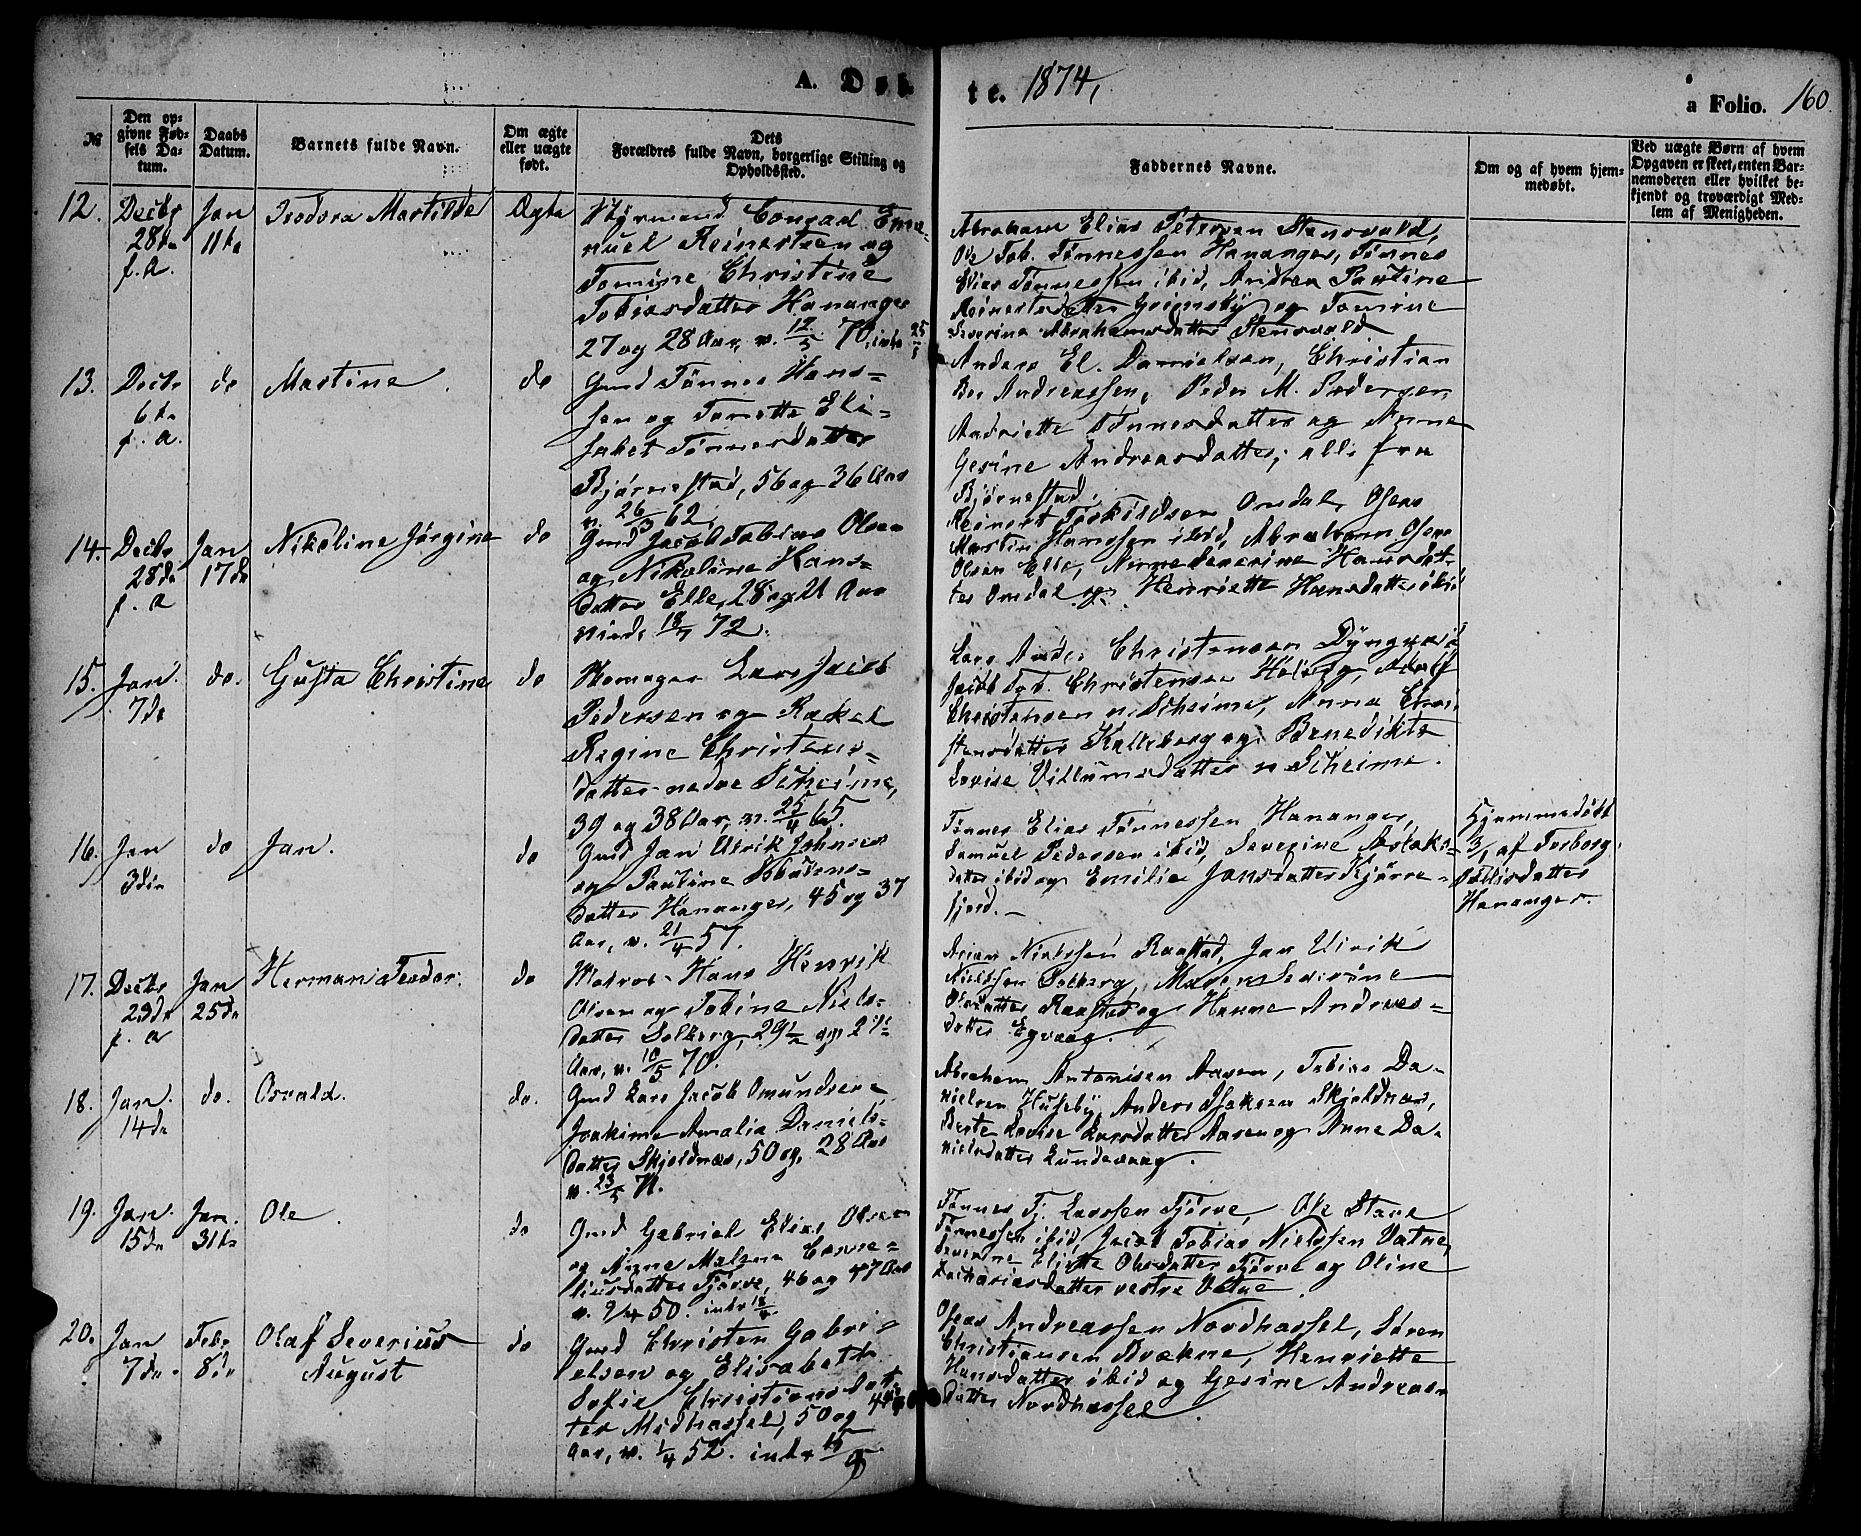 A. Døbte. 1874,
a Folio. 160
№
Den op-
givne Fød-
sels Da-
tum.
Daabs
Datum.
Barnets fulde Navn.
Om ægte
eller uægte
født.
Dets
Forældres fulde Navn, borgerlige Stilling og
Opholdssted.
Faddernes Navne.
Om og af hvem hjem-
medøbt.
Ved uægte Børn af hvem
Opgaven er skeet, enten Bar-
nemoderen eller hvilket be-
kjendt og troværdigt Med-
lem af Menigheden.
12.
Decbr
28de
f. a.
Jan
11te
Teodora Martilde
Ægte
Styrmand Conrad Ema-
nuel Reinertsen og
Tomine Christine
Tobiasdatter Hananger
27 og 28 Aar, v. 12/5 70, indr 25/1
Abraham Elias Petersen Stensvald,
Ole Tob. Tønnessen Hananger, Tønnes
Elias Tønnessen ibid, Andrea Pautine
Reinertsdatter Grimsby og Tomine
Severine Abrahamsdatter Stensvald
13.
Decbr
6te
f. a.
do
Martine
do
Gmd Tønnes Hans-
sen og Tonette Eli-
sabet Tønnesdatter
Bjørnestad, 56 og 36 Aar
v. 26/3 62.
Anders El. Danielsen, Christian
Andreassen, Peder M. Pedersen
Andriette Tønnesdatter og Anne
Gesine Andreasdatter, alle fra
Bjørnestad.
14.
Decbr
28de
f. a
Jan
17de
Nikoline Jørgine
do
Gmd Jacob Tobias Olsen
og Nikoline Hans-
datter Elle, 28 og 21 Aar
viede 18/7 72.
Reinert Torkildsen Omdal, Oseas
Martin Hanssen ibid, Abraham Oseas
Olsen Elle, Anne Severine Hansdat-
ter Omdal og Henriette Hansdatter ibid
15.
Jan.
7de
do.
Gusta Christine
do
Skomager Lars Jacob
Pedersen og Rakel
Regine Christens-
datter nedre Scheime,
39 og 38 Aar, v. 25/4 65.
Lars And. Christensen Dyngvold,
Jacob Christensen Holberg, Adolf
Christensen n. Scheime, Anna Chri-
stensdatter Kalleberg og Benedikte
Lovise Villumsdatter n Scheime.
16.
Jan
3die
do
Jan.
do
Gmd Jan Ulrik Johnsen
og Pauline
datter Hananger, 45 og 37
Aar, v. 21/4 57.
Tønnes Elias Tønnessen Hananger,
Samuel Pedersen ibid, Severine Aslaks-
datter ibid og Emilie Jansdatter Kjørre-
fjord.
Hjemmedøbt
3/1 af Torborg
datter
Hananger.
17.
Decbr
29de
f. a
Jan
25de
Herman Teodor.
do
Matros Hans Henrik
Olsen og Tobine Niels-
datter Solberg, 29½ og
Aar, v. 10/5 70.
Arian Nielssen Raastad, Jan Ulrik
Nielssen Solberg, Maren Severine
Olsdatter Raastad og Hanne Andreas-
datter Egvaag.
18.
Jan.
14de
do.
Osvald.
do.
Gmd Lars Jacob Omundsen
Joakime Amalia Daniels-
datter Skjoldnæs, 50 og 28 Aar
v. 23/5 71.
Abraham Antonisen Aasen, Tobias Da-
nielsen Huseby, Anders Isaksen Skjoldnæs,
Berte Lovise Larsdatter Aasen og Anne Da-
nielsdatter Lundevaag.
19.
Jan.
15de
Jan.
31te
Ole
do
Gmd Gabriel Elias Olsen
og Anne Malena Corne-
liusdatter Tjørve, 46 og 47 Aar
v. 9/4 50. indr 18/4
Tønnes T. Larssen Tjørve, Ole Stave
Tønnessen ibid, Jacob Tobias Nielssen Vatne,
Severine Elisette Olsdatter Tjørve og Oline
Zachariasdatter vestre Vatne.
20.
Jan
7de
Febr
8de
Olaf Severius
August
do
Gmd Christen Gabri-
elsen og Elisabeth
Sofie Christiansdat-
ter Midhassel, 50 og
Aar, v. 1/4 52. indr 15/
Oseas Andreassen Nordhassel, Søren
Christiansen Brækne, Henriette
Hansdatter ibid og Gesine Andreas-
datter Nordhassel.